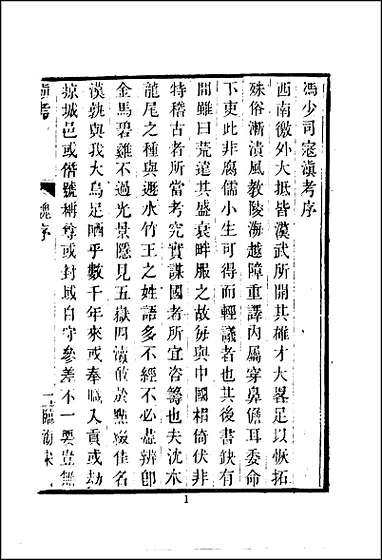 馮少司寇滇考序
西南徼外大抵皆漢武所開其雄才大畧足以恢拓
殊俗漸漬風教陵海越障重譯內屬穿鼻儋耳委命
下吏此非腐儒小生可得而輕議者也其後書缺有
間雖曰荒遠其盛衰畔服之故每與中國相倚伏非
特稽古者所當考究實謀國者所宜咨籌也夫沈木
龍尾之種與遯水竹王之姓語多不經不必盡辨卽
金馬碧雞不過光景隱見五嶽四瀆做於點綴佳名
漢孰與我大烏足哂乎數千年來或奉職入貢或劫
掠城邑或僭號稱尊或封域自守參差不一要豈無
滇考
魏序
一
臨海宋
1